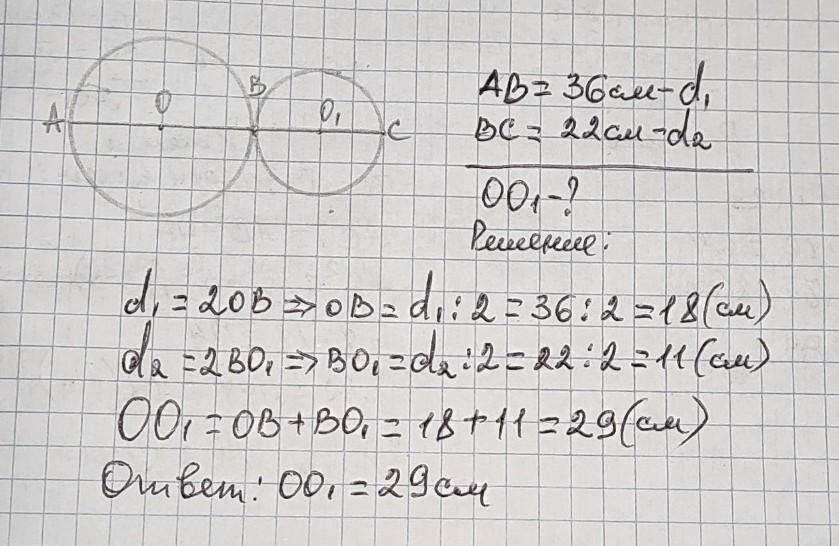 A
O
B
O₁
C
AB = 36см - d₁
BC = 22см - d₂
OO₁ - ?
Решение:
d₁ = 2OB ⇒ OB = d₁ : 2 = 36 : 2 = 18 (см)
d₂ = 2BO₁ ⇒ BO₁ = d₂ : 2 = 22 : 2 = 11 (см)
OO₁ = OB + BO₁ = 18 + 11 = 29 (см)
Ответ: OO₁ = 29см